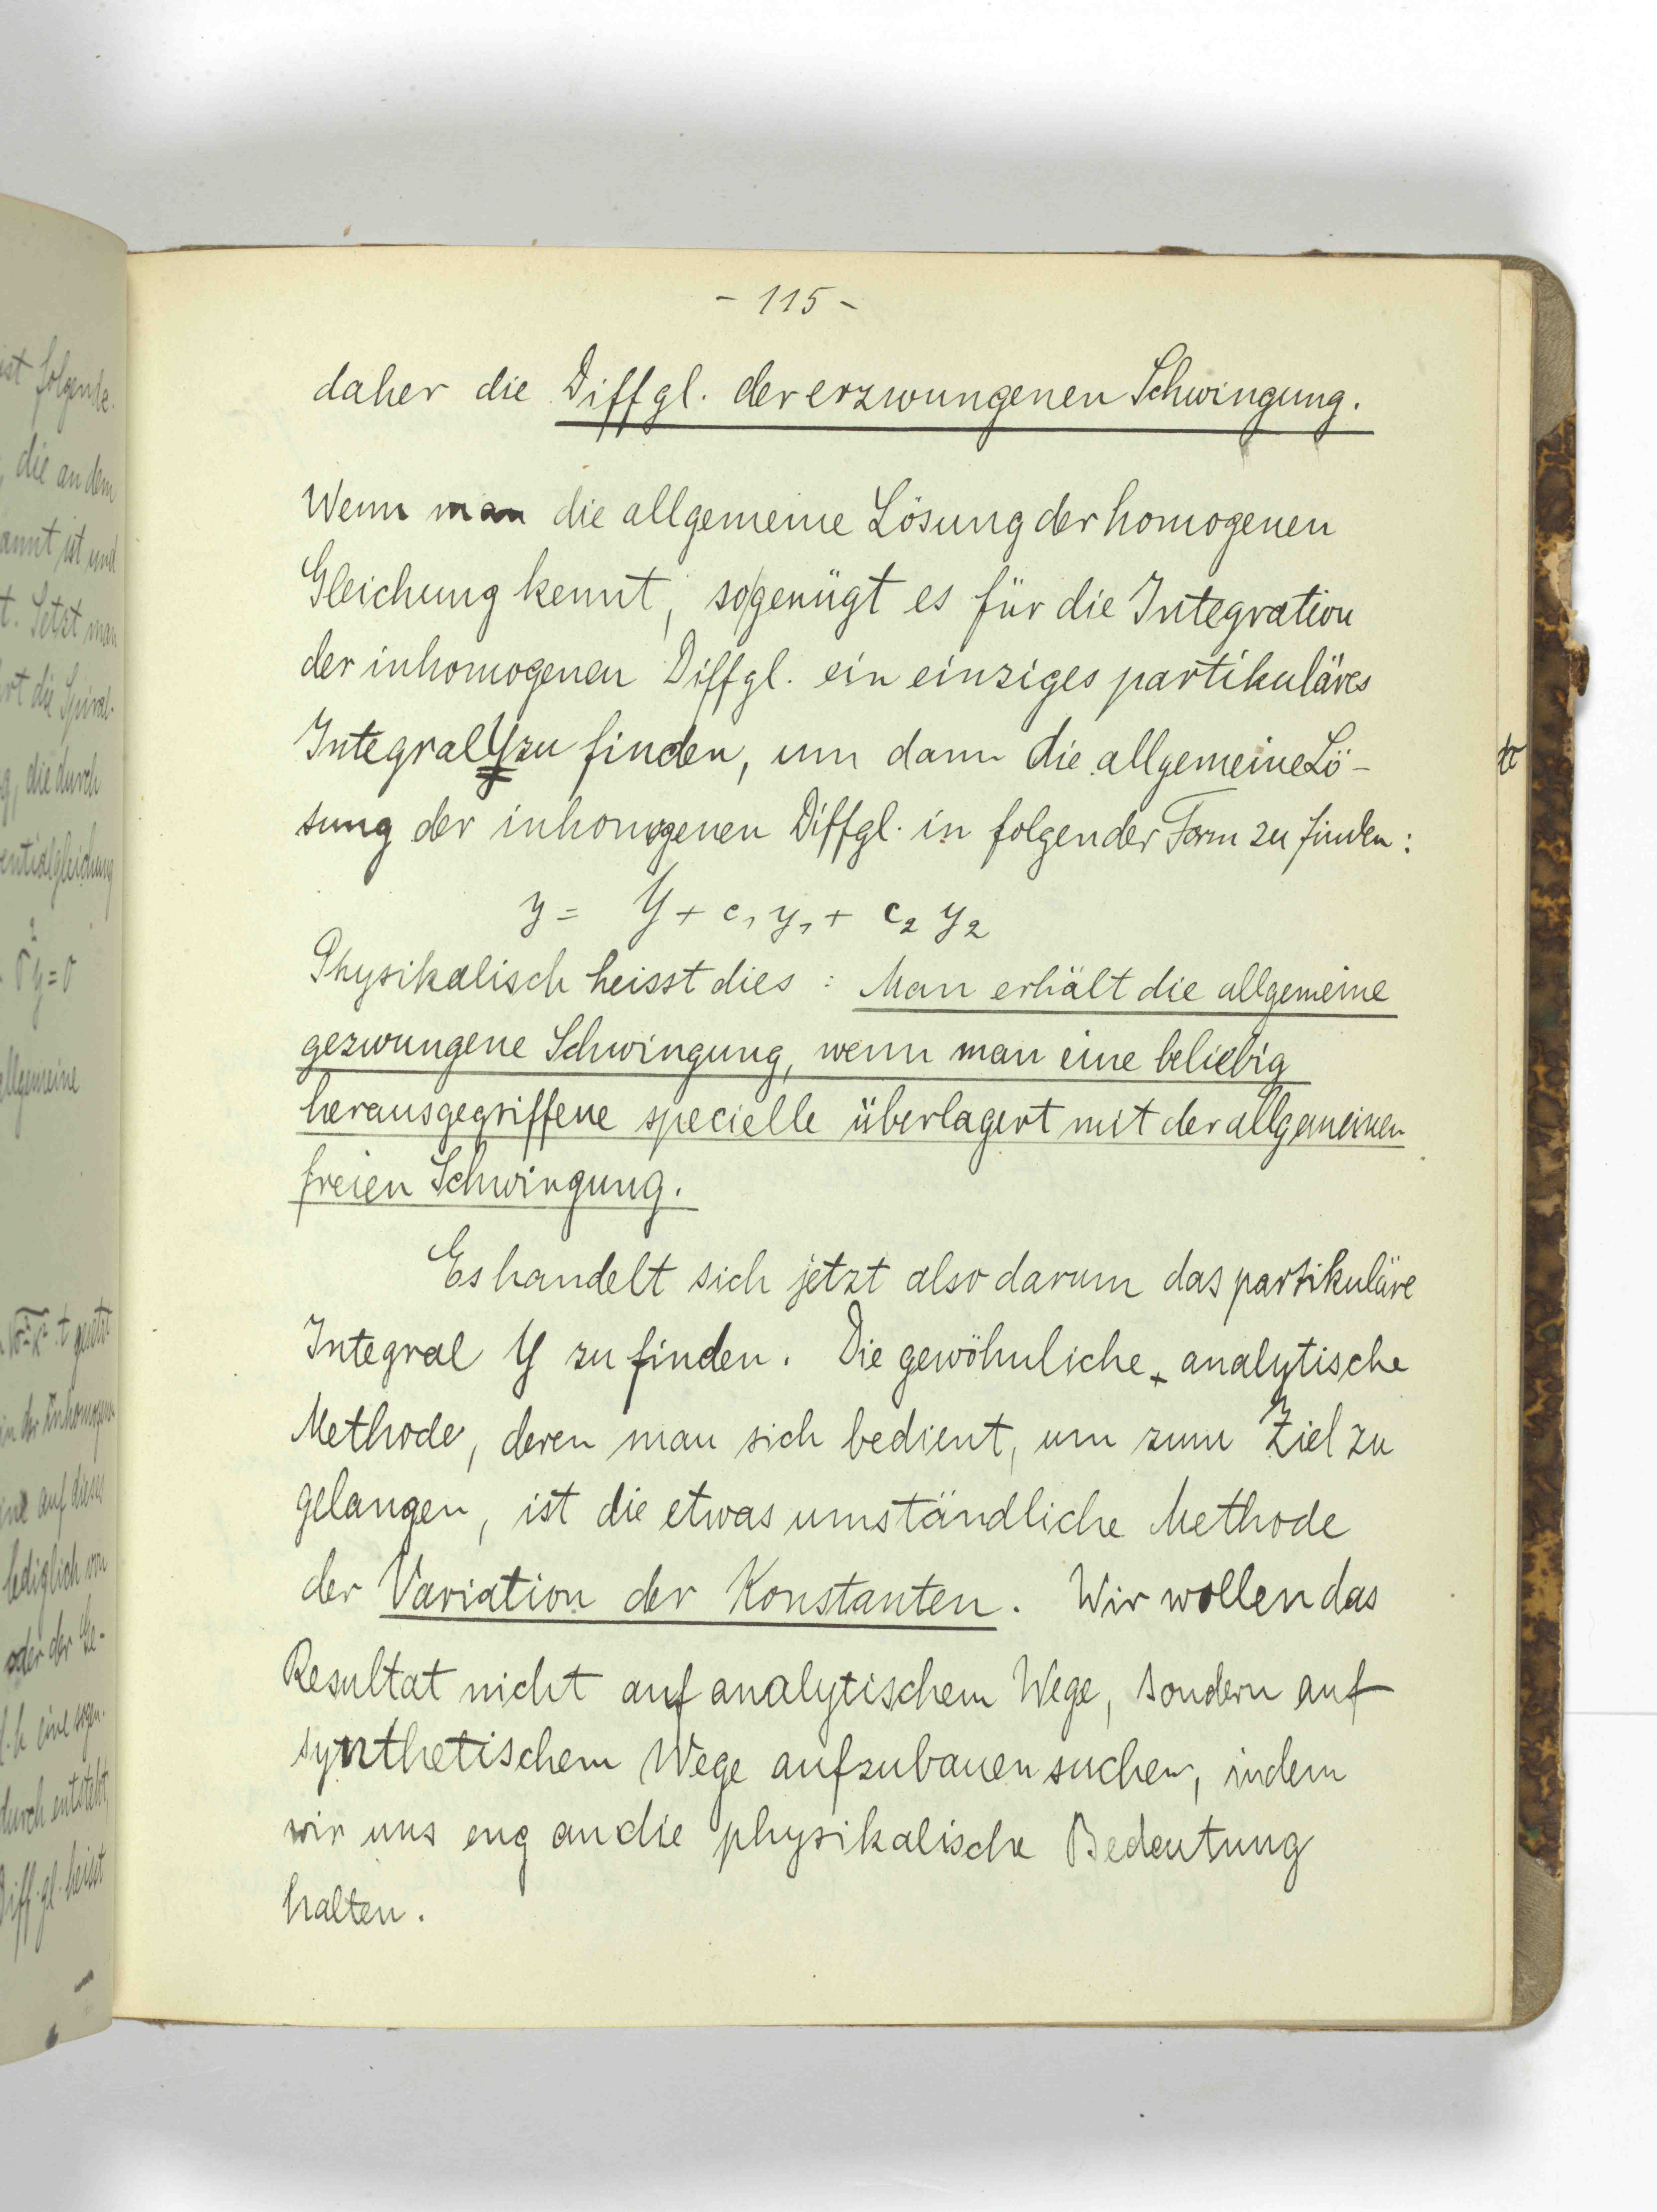 - 115 -
daher die Diffgl. der erzwungenen Schwingung.
Wenn man die allgemeine Lösung der homogenen
Gleichung kennt, so genügt es für die Integration
der inhomogenen Diffgl. ein einziges partikuläres
Integral Y zu finden, um dann die allgemeine Lö-
sung der inhomogenen Diffgl. in folgender Form zu finden:
y = Y + c₁ y₁ + c₂ y₂
Physikalisch heisst dies : Man erhält die allgemeine
gezwungene Schwingung, wenn man eine beliebig
herausgegriffene specielle überlagert mit der allgemeinen
freien Schwingung.
Es handelt sich jetzt also darum das partikuläre
Integral Y zu finden. Die gewöhnliche analytische
Methode, deren man sich bedient, um zum Ziel zu
gelangen, ist die etwas umständliche Methode
der Variation der Konstanten. Wir wollen das
Resultat nicht auf analytischem Wege, sondern auf
synthetischem Wege aufzubauen suchen, indem
wir uns eng an die physikalische Bedeutung
halten.
ist folgende
, die an dem
annt ist und
t. Setzt man
rt die Spiral-
g, die durch
entialgleichung
allgemeine
auf dieses
lediglich von
oder der Ge-
durch entsteht,
Diff.gl. heisst